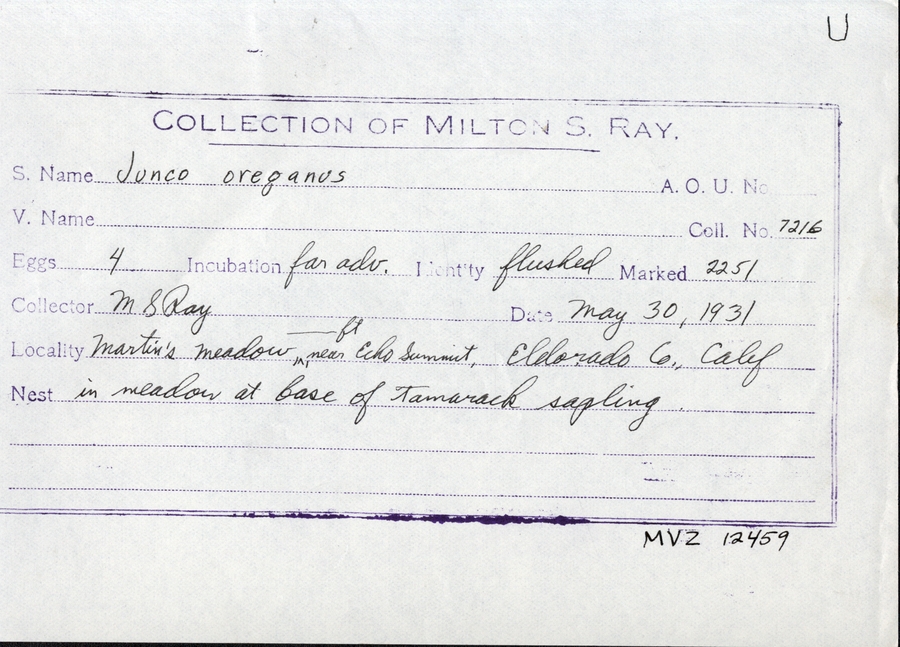 U
COLLECTION OF MILTON S. RAY.
S. Name Junco oreganus A. O. U. No
V. Name Coll. No. 7216
Eggs 4 Incubation far adv. Identity flushed Marked 2251
Collector M S Ray Date May 30, 1931
ft
Locality Martin's meadow, near Echo Summit, Eldorado Co., Calif
Nest in meadow at base of tamarack sapling.
MVZ 12459